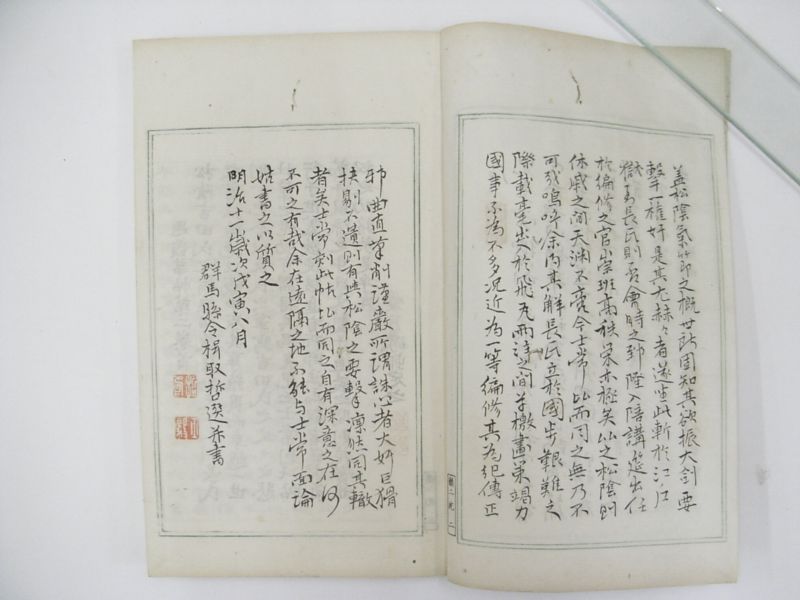 蓋松陰氣節之概世所固知其欲振大剣要
撃一権奸是其尤赫々者遂坐此斬於江戸
獄吏長氏則吾會時之抑陸入陪講筵出任
於編修之官崇班高秩栄亦極矣以之松陰則
休戚之間天渊不啻今士常比而同之無乃不
可乎嗚呼余内其解長氏立於國歩艱難之
際載毫出入於飛丸雨注之間草檄畫策竭力
國事不為不多況近為一等編修其為紀傳正
邪曲直筆削謹嚴所謂誅心者大奸巨猾
抉剔不遺則有與松陰之要撃凛然同其轍
者矣士常刻此帖比而同之自有深意之在何
不可之有哉余在遠隔之地不能与士常面論
姑書之以質之
明治十一歳次戊寅八月
群馬縣令楫取哲選并書